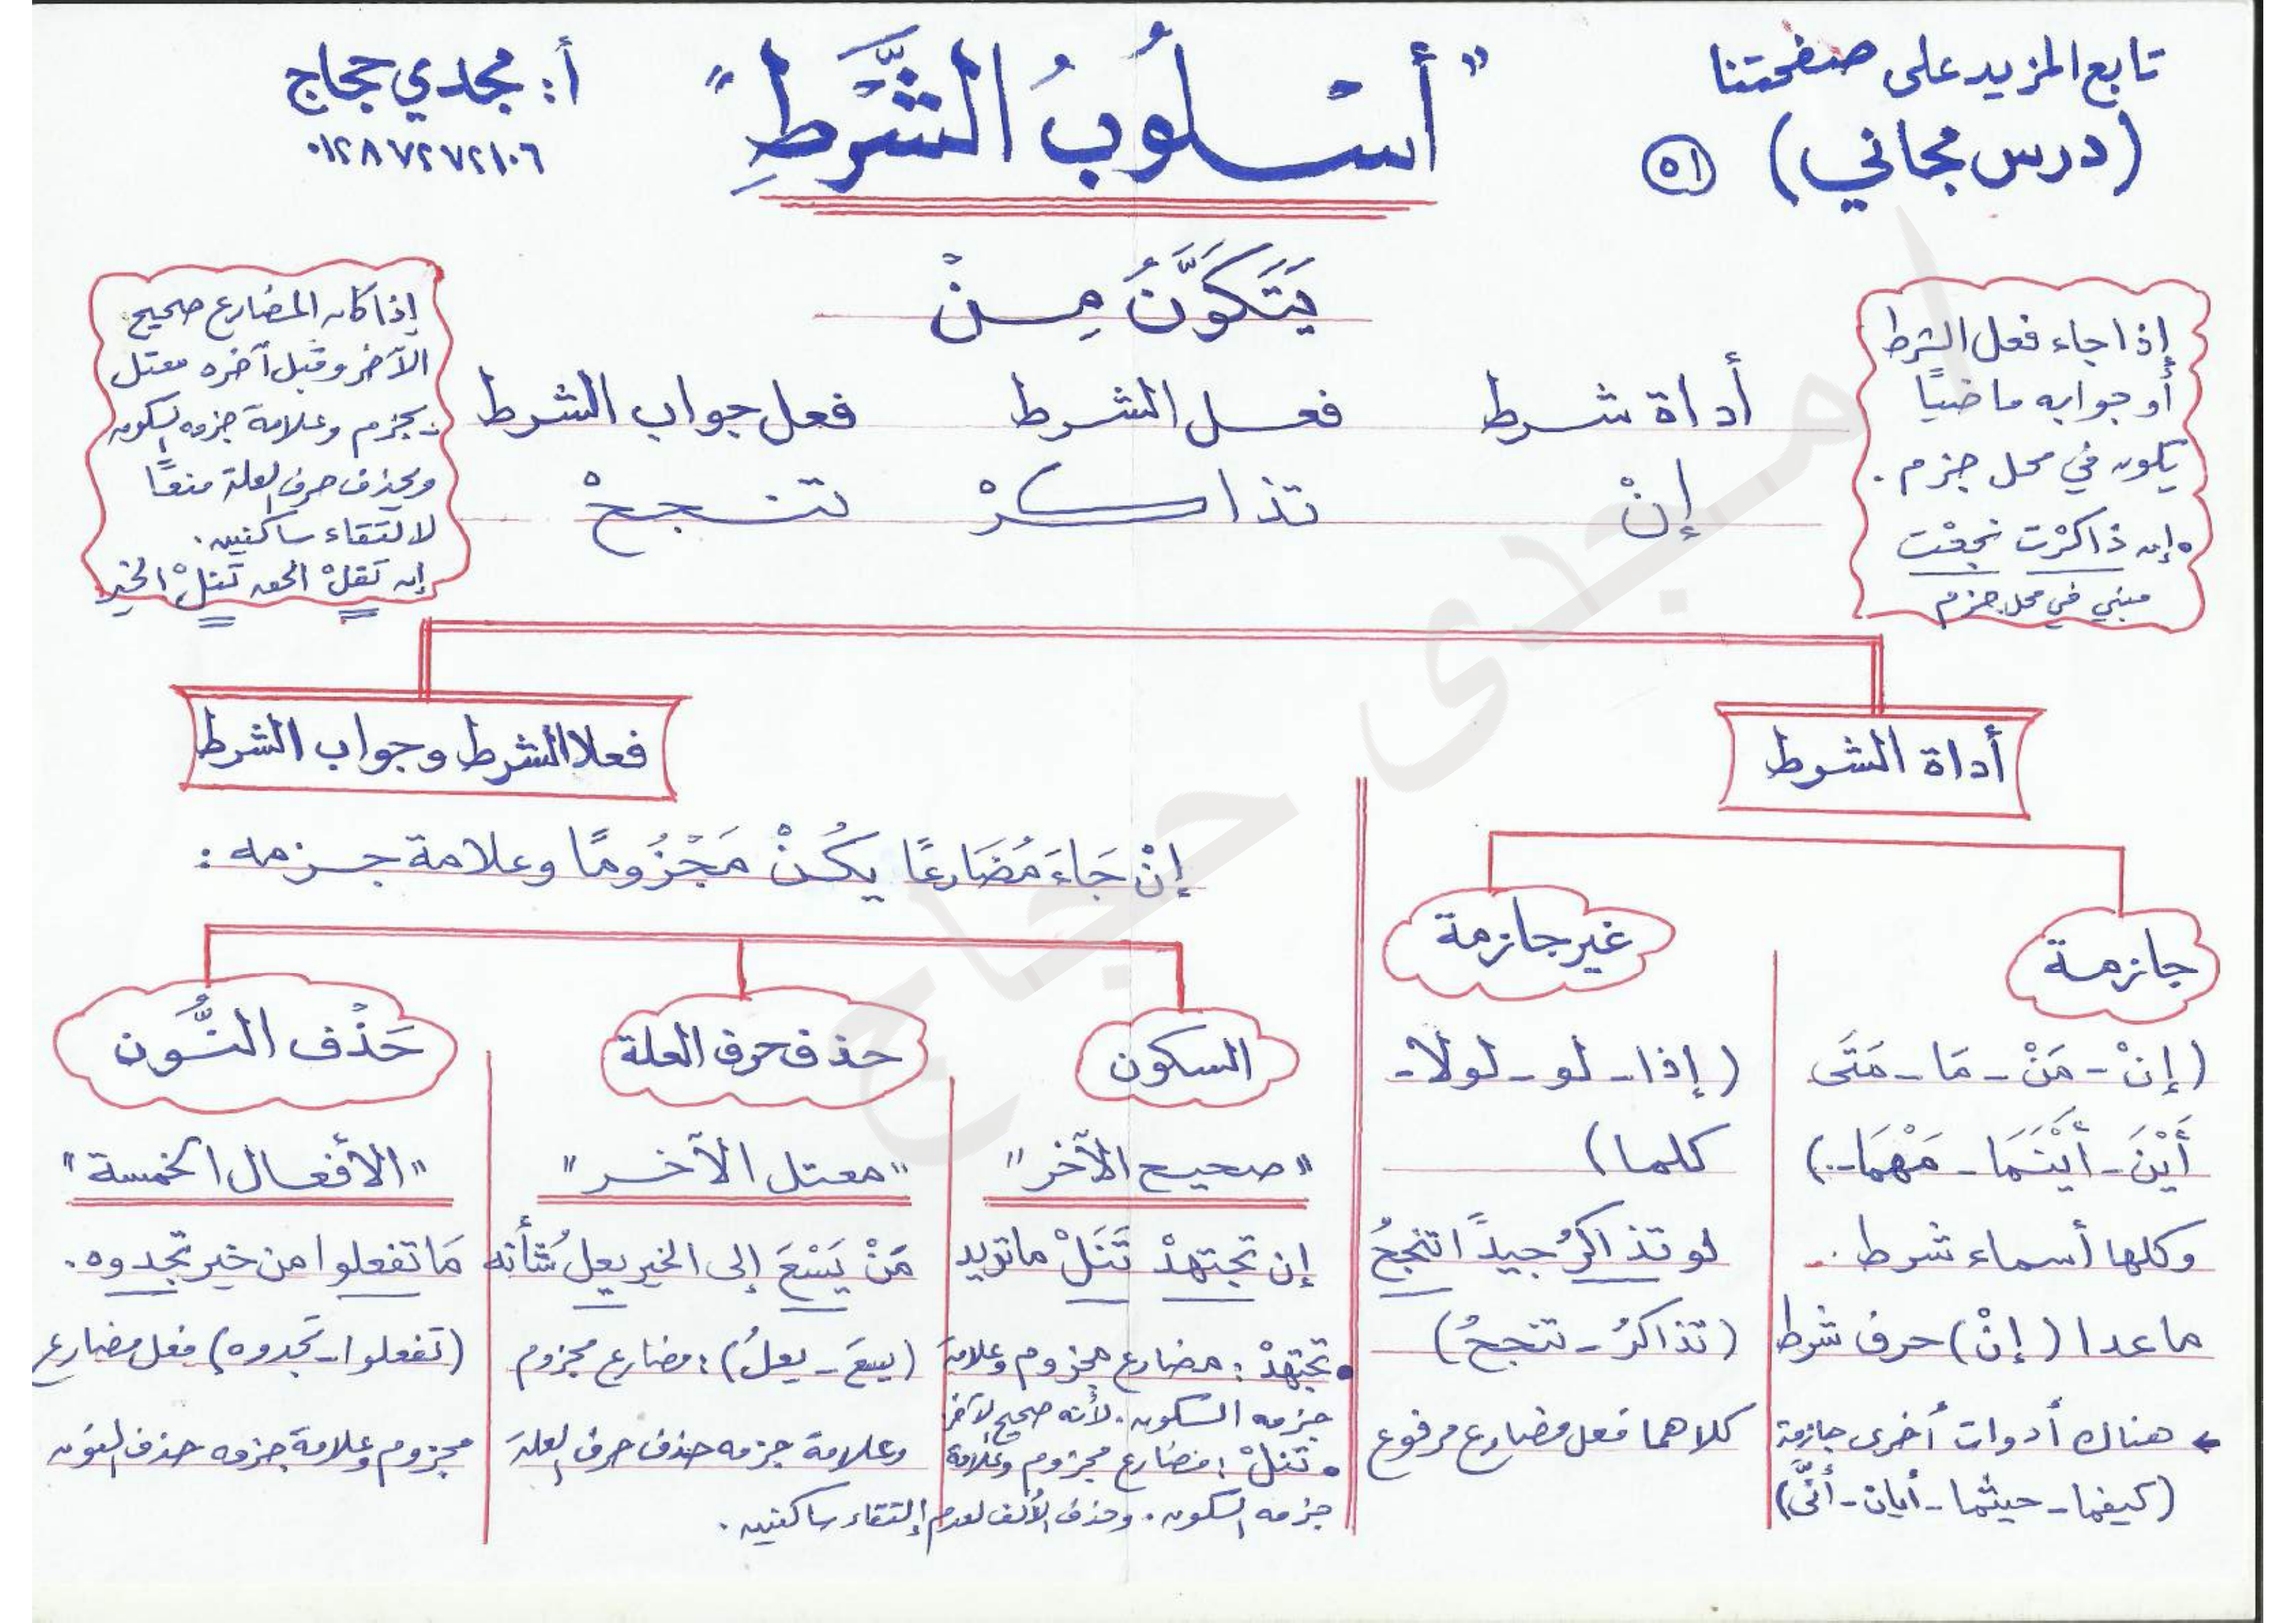 تابع المزيد على صفحتنا
(درس مجاني) ٥١
"أسْلُوبُ الشَّرطِ"
أ: مجدي حجاج
٠١٢٨٧٢٧٢١٠٦
يَتَكَوَّنُ مِنْ
أداة شرط فعل الشرط فعل جواب الشرط
إنْ تذاكرْ تنجحْ
إذا جاء فعل الشرط
أو جوابه ماضيًا
يكون في محل جزم .
إن ذاكرْت نجحْت
مبني في محل جزم
إذا كان المضارع صحيح
الآخر وقبل آخره معتل
يجزم وعلامة جزمه السكون
ويحذف حرف العلة منعًا
لالتقاء ساكنين .
إن تقلْ الحق تنلْ الخير
أداة الشرط
جازمة
(إنْ - مَنْ - مَا - مَتَى
أَيْنَ - أَيْنَمَا - مَهْمَا..)
وكلها أسماء شرط ..
ماعدا (إنْ) حرف شرط
← هناك أدوات أخرى جازمة
(كيفما - حيثما - أيان - أنَّى)
غير جازمة
(إذا - لو - لولا -
كلما)
لو تذاكرُ جيدًا تنجحُ
(تذاكرُ - تنجحُ)
كلاهما فعل مضارع مرفوع
فعلا الشرط وجواب الشرط
إنْ جَاءَ مُضَارعًا يكُنْ مَجْزُومًا وعلامة جزمه :
السكون
"صحيح الآخر"
إن تجتهدْ تَنَلْ ماتريد
• تجتهدْ : مضارع مجزوم وعلامة
جزمه السكون . لأنه صحيح الآخر
• تنلْ : مضارع مجزوم وعلامة
جزمه السكون . وحذف الألف لعدم إلتقاء ساكنين .
حذف حرف العلة
"معتل الآخر"
مَنْ يَسْعَ إلى الخير يعلُ شأنه
(يسعَ - يعلُ) : مضارع مجزوم
وعلامة جزمه حذف حرف العلة
حَذْف النُّون
"الأفعال الخمسة"
مَا تفعلوا من خير تجدوه .
(تفعلوا - تجدوه) فعل مضارع
مجزوم وعلامة جزمه حذف النون
امجدى حجاج